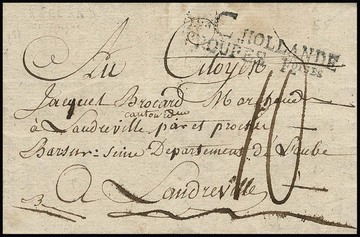 HOLLANDE
Au Citoyen
Jacquet Brocard Marchand
canton du
à Landreville par et proche
Barsur-seine Departement de l'aube
A Landreville
10